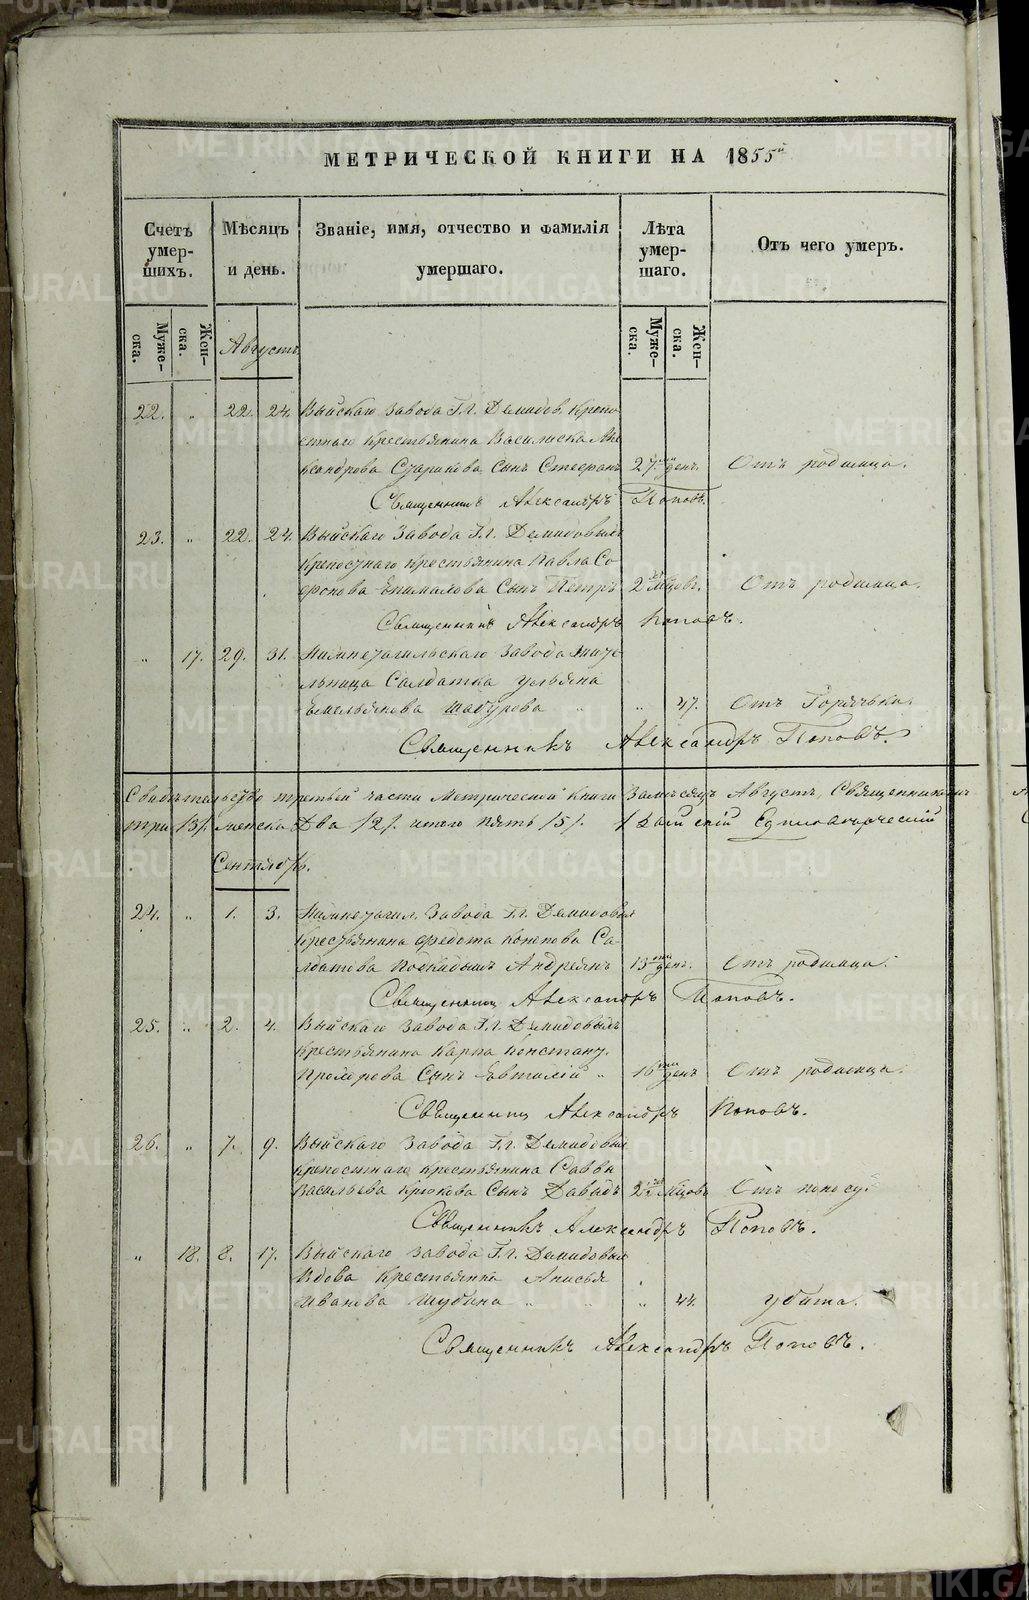 МЕТРИЧЕСКОЙ КНИГИ НА 1855й
Счетъ умер-шихъ.
Мѣсяцъ и день.
Званіе, имя, отчество и фамилія умершаго.
Лѣта умер-шаго.
Отъ чего умеръ.
Муже-ска.
Жен-ска.
Августъ
Муже-ска.
Жен-ска.
22. „ 22. 24. Выйскаго завода Г.г. Демидов. крепо-
стнаго крестьянина Василиска Але-
ксандрова Старикова сынъ Стефанъ 27. ден. Отъ родимца.
Священникъ Александръ Поповъ.
23. „ 22. 24. Выйскаго завода Г.г. Демидовыхъ
крепостнаго крестьянина Павла Со-
фронова сынъ Петръ 2 мѣсяцовъ. Отъ родимца.
Священникъ Александръ Поповъ.
„ 17. 29. 31. Нижнетагильскаго завода жите-
льница Салдатка Ульяна
Емельянова Шабурова „ „ 47. Отъ Горячьки.
Священникъ Александръ Поповъ.
Свидѣтельство третьей части Метрической книги за мѣсяцъ Августъ, Священникомъ
три /3/. женска два /2/. итого пять /5/.
Сентябрь.
24. „ 1. 3. Нижнетагил. завода Г.г. Демидовыхъ
крестьянина Федота Кононова Са-
лдатова подкидышъ Андреянъ 13 ден. Отъ родимца.
Священникъ Александръ Поповъ.
25. „ 2. 4. Выйскаго завода Г.г. Демидовыхъ
крестьянина Карпа Констант.
сынъ Евтихій „ 16 ден. Отъ родимца.
Священникъ Александръ Поповъ.
26. „ 7. 9. Выйскаго завода Г.г. Демидовых
крепостнаго крестьянина Саввы
Васильева Крюкова сынъ Давыдъ 2½ мѣсяцовъ Отъ поносу.
Священникъ Александръ Поповъ.
„ 18. 8. 17. Выйскаго завода Г.г. Демидовых
вдова крестьянка Анисья
Иванова Шубина „ „ „ 44. убита.
Священникъ Александръ Поповъ.
METRIKI.GASO-URAL.RU